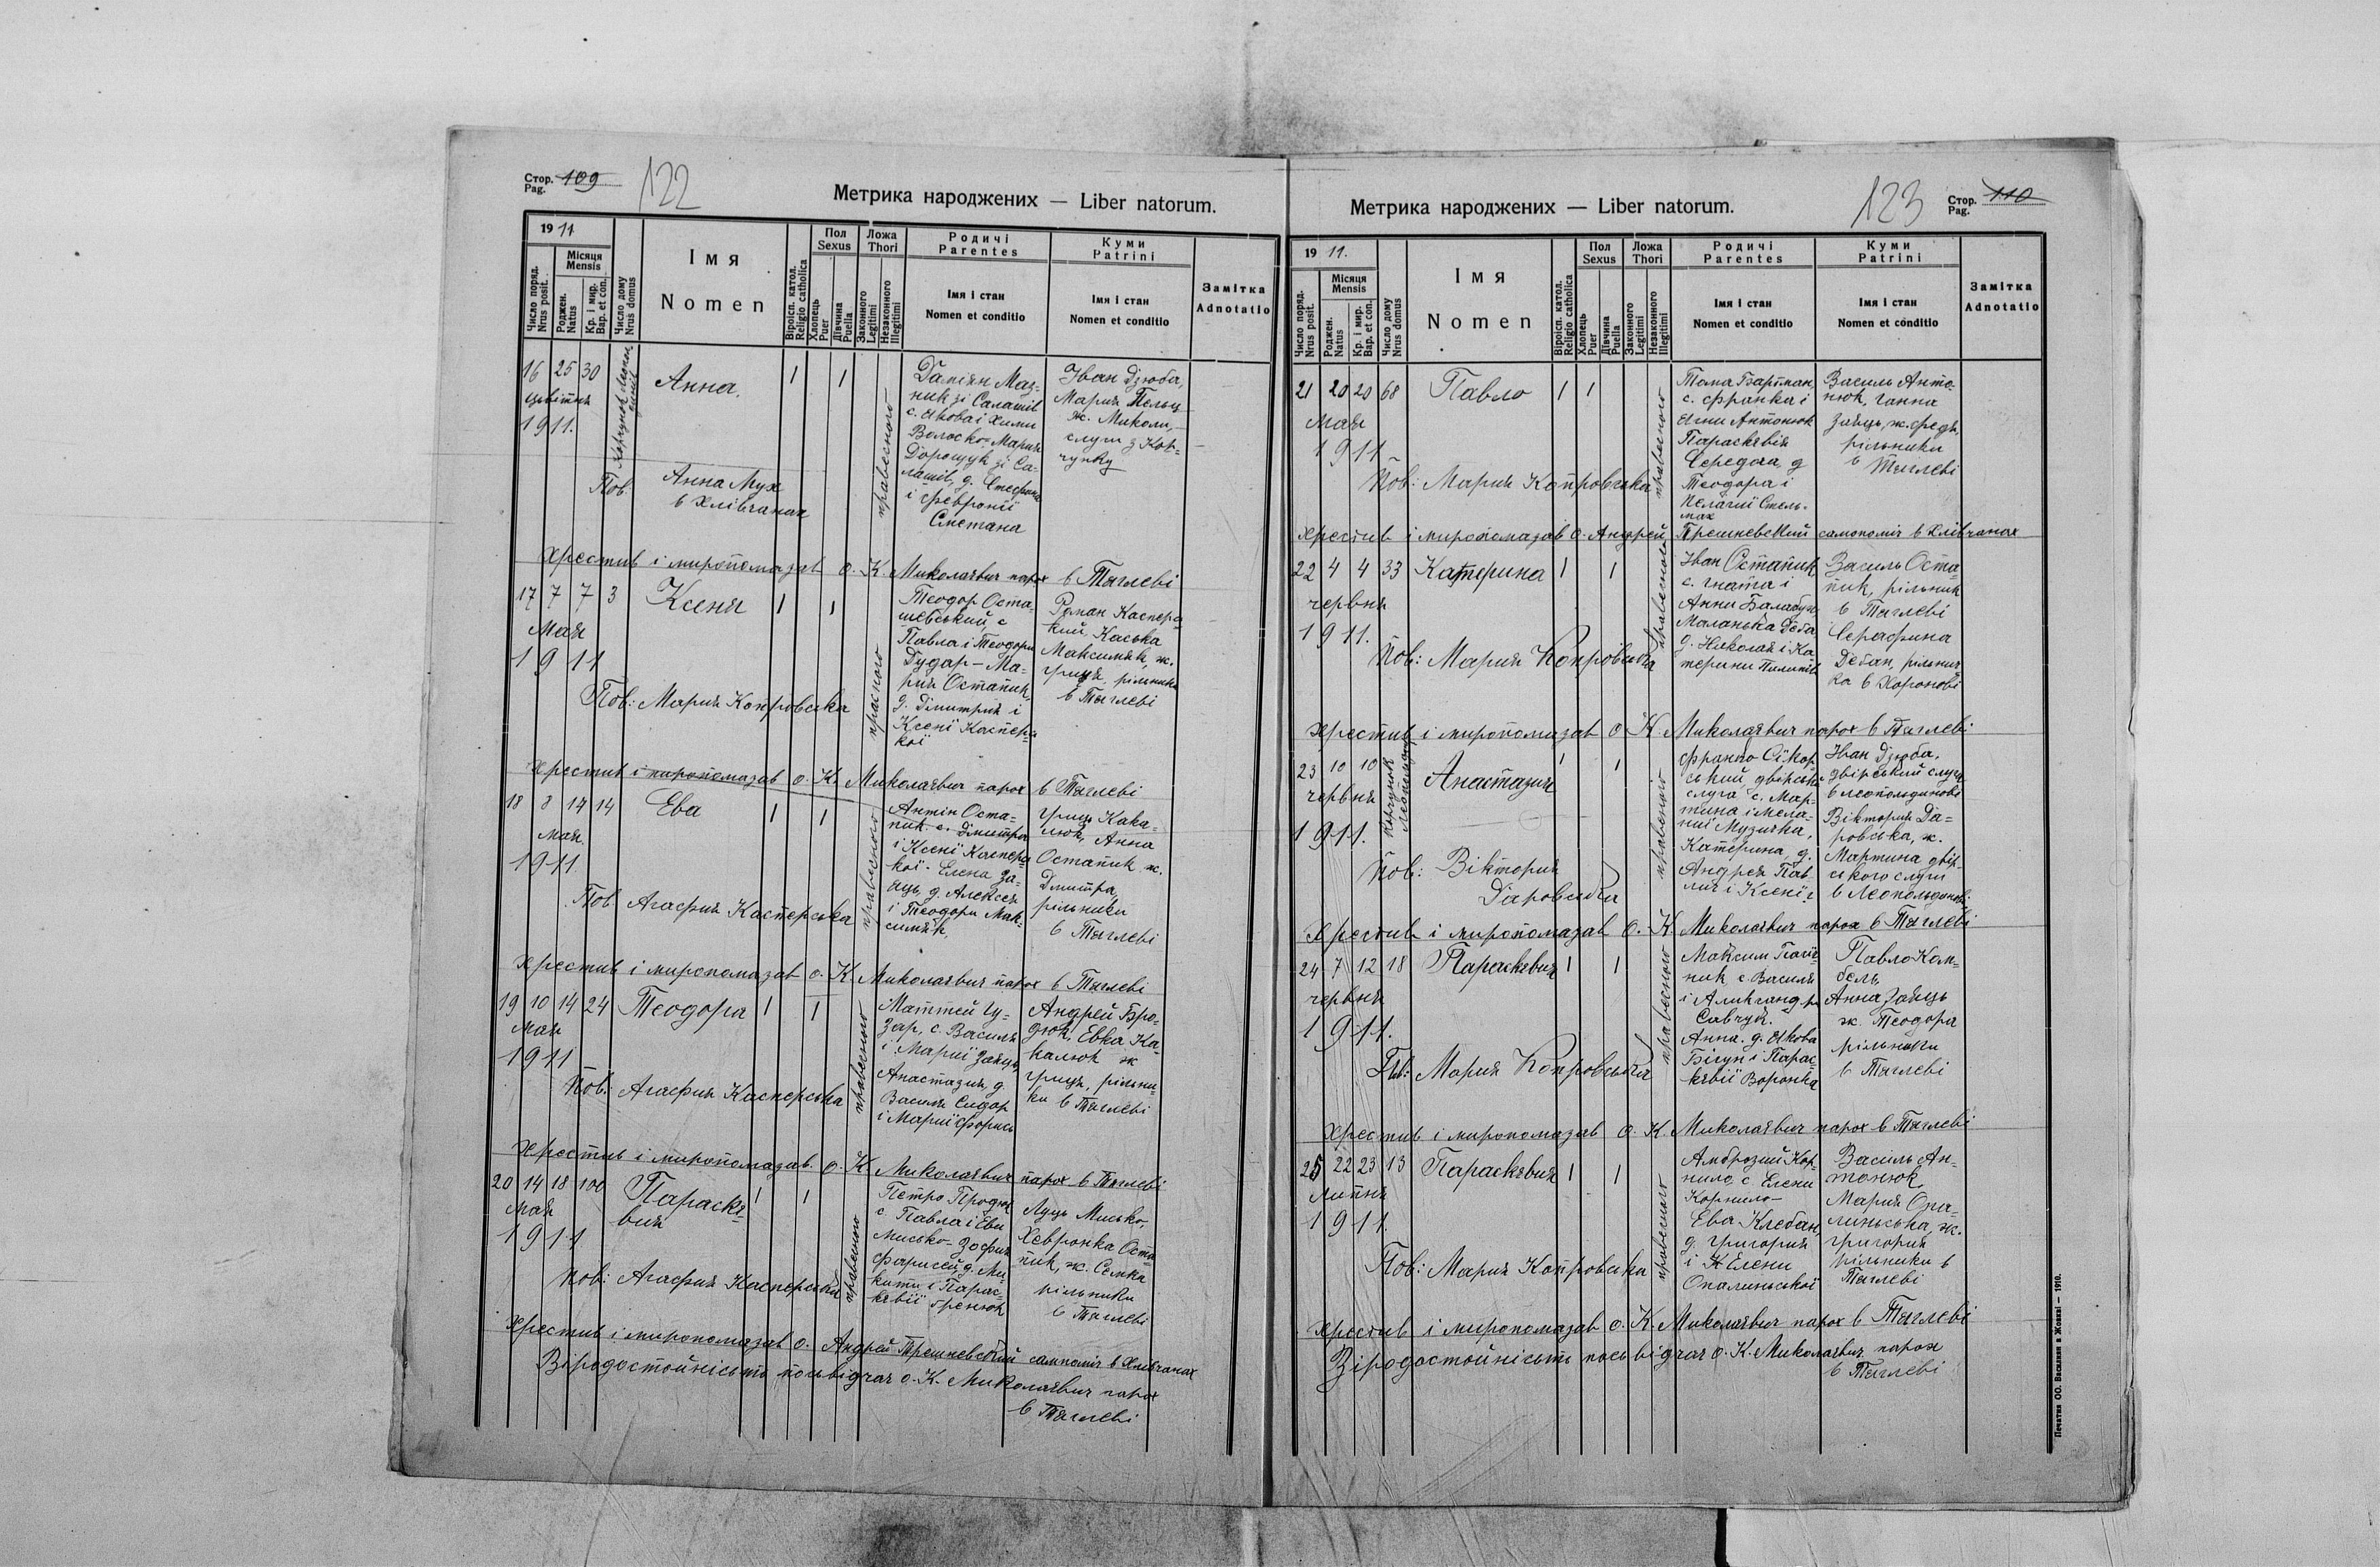 Стор. 109
Pag.
122
Метрика народжених — Liber natorum.
19 11
Число поряд.
Nrus posit.
Місяця
Mensis
Роджен.
Natus
Кр. і мир.
Bap. et con.
Число дому
Nrus domus
Імя
Nomen
Віроісп. катол.
Religio catholica
Пол
Sexus
Хлопець
Puer
Дівчина
Puella
Ложа
Thori
Законного
Legitimi
Незаконного
Illegitimi
Родичі
Parentes
Імя і стан
Nomen et conditio
Куми
Patrini
Імя і стан
Nomen et conditio
Замітка
Adnotatio
16 25 30
цьвітня
1911.
Анна.
1 1
правесного
Даміян Маз-
ник зі Салашів
с. Якова і Хими
Волоско- Мария
Дорощук зі Са-
лашів, д. Стефана
і Февронії
Сметана
Іван Дзюба,
Мария Пельц
ж. Миколи, –
слуги з Кор-
чунку
Пов. Анна Мух
в Хлівчанах
Хрестив і миропомазав о. К. Миколаєвич парох в Тяглеві
17 7 7 3 Ксеня 1 1
Мая
1911
правесного
Теодор Оста-
шевський, с.
Павла і Теодори
Дудар – Ма-
рия Остапик,
д. Дімитрия і
Ксенї Каспер-
кої
Роман Каспер-
кий, Каська
Максимяк, ж.
Гриця, рільники
в Тяглеві
Пов: Мария Копровська
Хрестив і миропомазав о. К. Миколаєвич парох в Тяглеві
18 8 14 14 Ева 1 1
мая.
1911.
правесного
Антін Оста-
пик с. Дмитра
і Ксенї Каспер-
кої. Елена За-
яць, д. Алексея
і Теодори Мак-
симяк,
Гриць Кака-
люк, Анна
Остапик ж.
Дмитра,
рільники
в Тяглеві
Пов Агафия Касперська
Хрестив і миропомазав о. К. Миколаєвич парох в Тяглеві
19 10 14 24 Теодора 1 1
мая
1911
правесного
Маттей Гу-
зар, с. Василя
і Мариї Заяць,
Анастазия, д.
Василя Сидор
і Мариї Форись
Андрей Бро-
дюк, Евка Ка-
калюк ж
Гриця, рільни-
ки в Тяглеві
Пов: Агафия Касперська
Хрестив і миропомазав о. К. Миколаєвич парох в Тяглеві
20 14 18 100 Параскe-
вия 1 1
мая
1911
правесного
Петро Продюк
с. Павла і Еви
Мисько- Зофия
Фарисей, д. Ми-
кити і Парас-
кевії Гренюк
Луць Мисько,
Хевронка Оста-
пик, ж. Семка
рільники
в Тяглеві
Пов: Агафия Касперська
Хрестив і миропомазав о. Андрей Трешневский сампоміч в Хлівчанах
Віродостойність посьвідчає о. К. Миколаєвич парох
в Тяглеві
123
Стор. 110
Pag.
Метрика народжених — Liber natorum.
19 11.
Число поряд.
Nrus posit.
Місяця
Mensis
Роджен.
Natus
Кр. і мир.
Bap. et con.
Число дому
Nrus domus
Імя
Nomen
Віроісп. катол.
Religio catholica
Пол
Sexus
Хлопець
Puer
Дівчина
Puella
Ложа
Thori
Законного
Legitimi
Незаконного
Illegitimi
Родичі
Parentes
Імя і стан
Nomen et conditio
Куми
Patrini
Імя і стан
Nomen et conditio
Замітка
Adnotatio
21 20 20 68 Павло 1 1
мая
1911
правесного
Тома Бартман,
с. Франка і
Агни Антонюк
Параскевія
Середа, д
Теодора і
Пелагиї Стель-
мах
Василь Анто-
нюк, Ганна
Заяць, ж. Федя,
рільники
в Тяглеві
Пов: Мария Копровська
Хрестив і миропомазав о. Андрей Трешневский сампоміч в Хлівчанах
22 4 4 33 Катерина 1 1
червня
1911.
правесного
Іван Остапик
с. Гната і
Анни Балабух
Маланька Деба
д. Николая і Ка
терини Пилипів
Василь Оста-
пик, рільник
в Тяглеві
Серафина
Дебан, рільнич
ка в Хоронові
Пов: Мария Копровська
Хрестив і миропомазав о. К. Миколаєвич парох в Тяглеві
23 10 10
червня
1911.
Корчунок
Леопольдунок
Анастазия 1 1
правесного
Франко Сікор-
ський двірський
слуга с. Мар-
тина і Мела-
нії Музичка,
Катерина, д.
Андрея Пав
лич і Ксенї
Іван Дзюба,
двірський слуга
в Леопольдинові
Віктория Да-
ровська, ж.
Мартина двір-
ського слуги
в Леопольдинові
Пов: Віктория
Даровська
Хрестив і миропомазав о. К. Миколаєвич парох в Тяглеві
24 7 12 18 Параскевия 1 1
червня
1911.
правесного
Максим
ник с. Василя
і Аликсандри
Савчук.
Анна. д. Якова
Бігун і Парас-
кевії Воронка
Павло Ком-
бель,
Анна Заяць
ж. Теодора
рільники
в Тяглеві
Пов: Мария Копровська
Хрестив і миропомазав о. К. Миколаєвич парох в Тяглеві
25 22 23 13 Параскевия 1 1
липня
1911.
правесного
Амброзий Кор-
нило, с. Елени
Корнило –
Ева Клебан,
д. Григория
і Елени
Опалинської
Василь Ан-
тонюк,
Мария Опа-
линьська, ж.
Григория
рільники в
Тяглеві
Пов: Мария Копровська
Хрестив і миропомазав о. К. Миколаєвич парох в Тяглеві
Віродостойність посьвідчає о. К. Миколаєвич парох
в Тяглеві
Печатня ОО. Василиян в Жовкві — 1910.